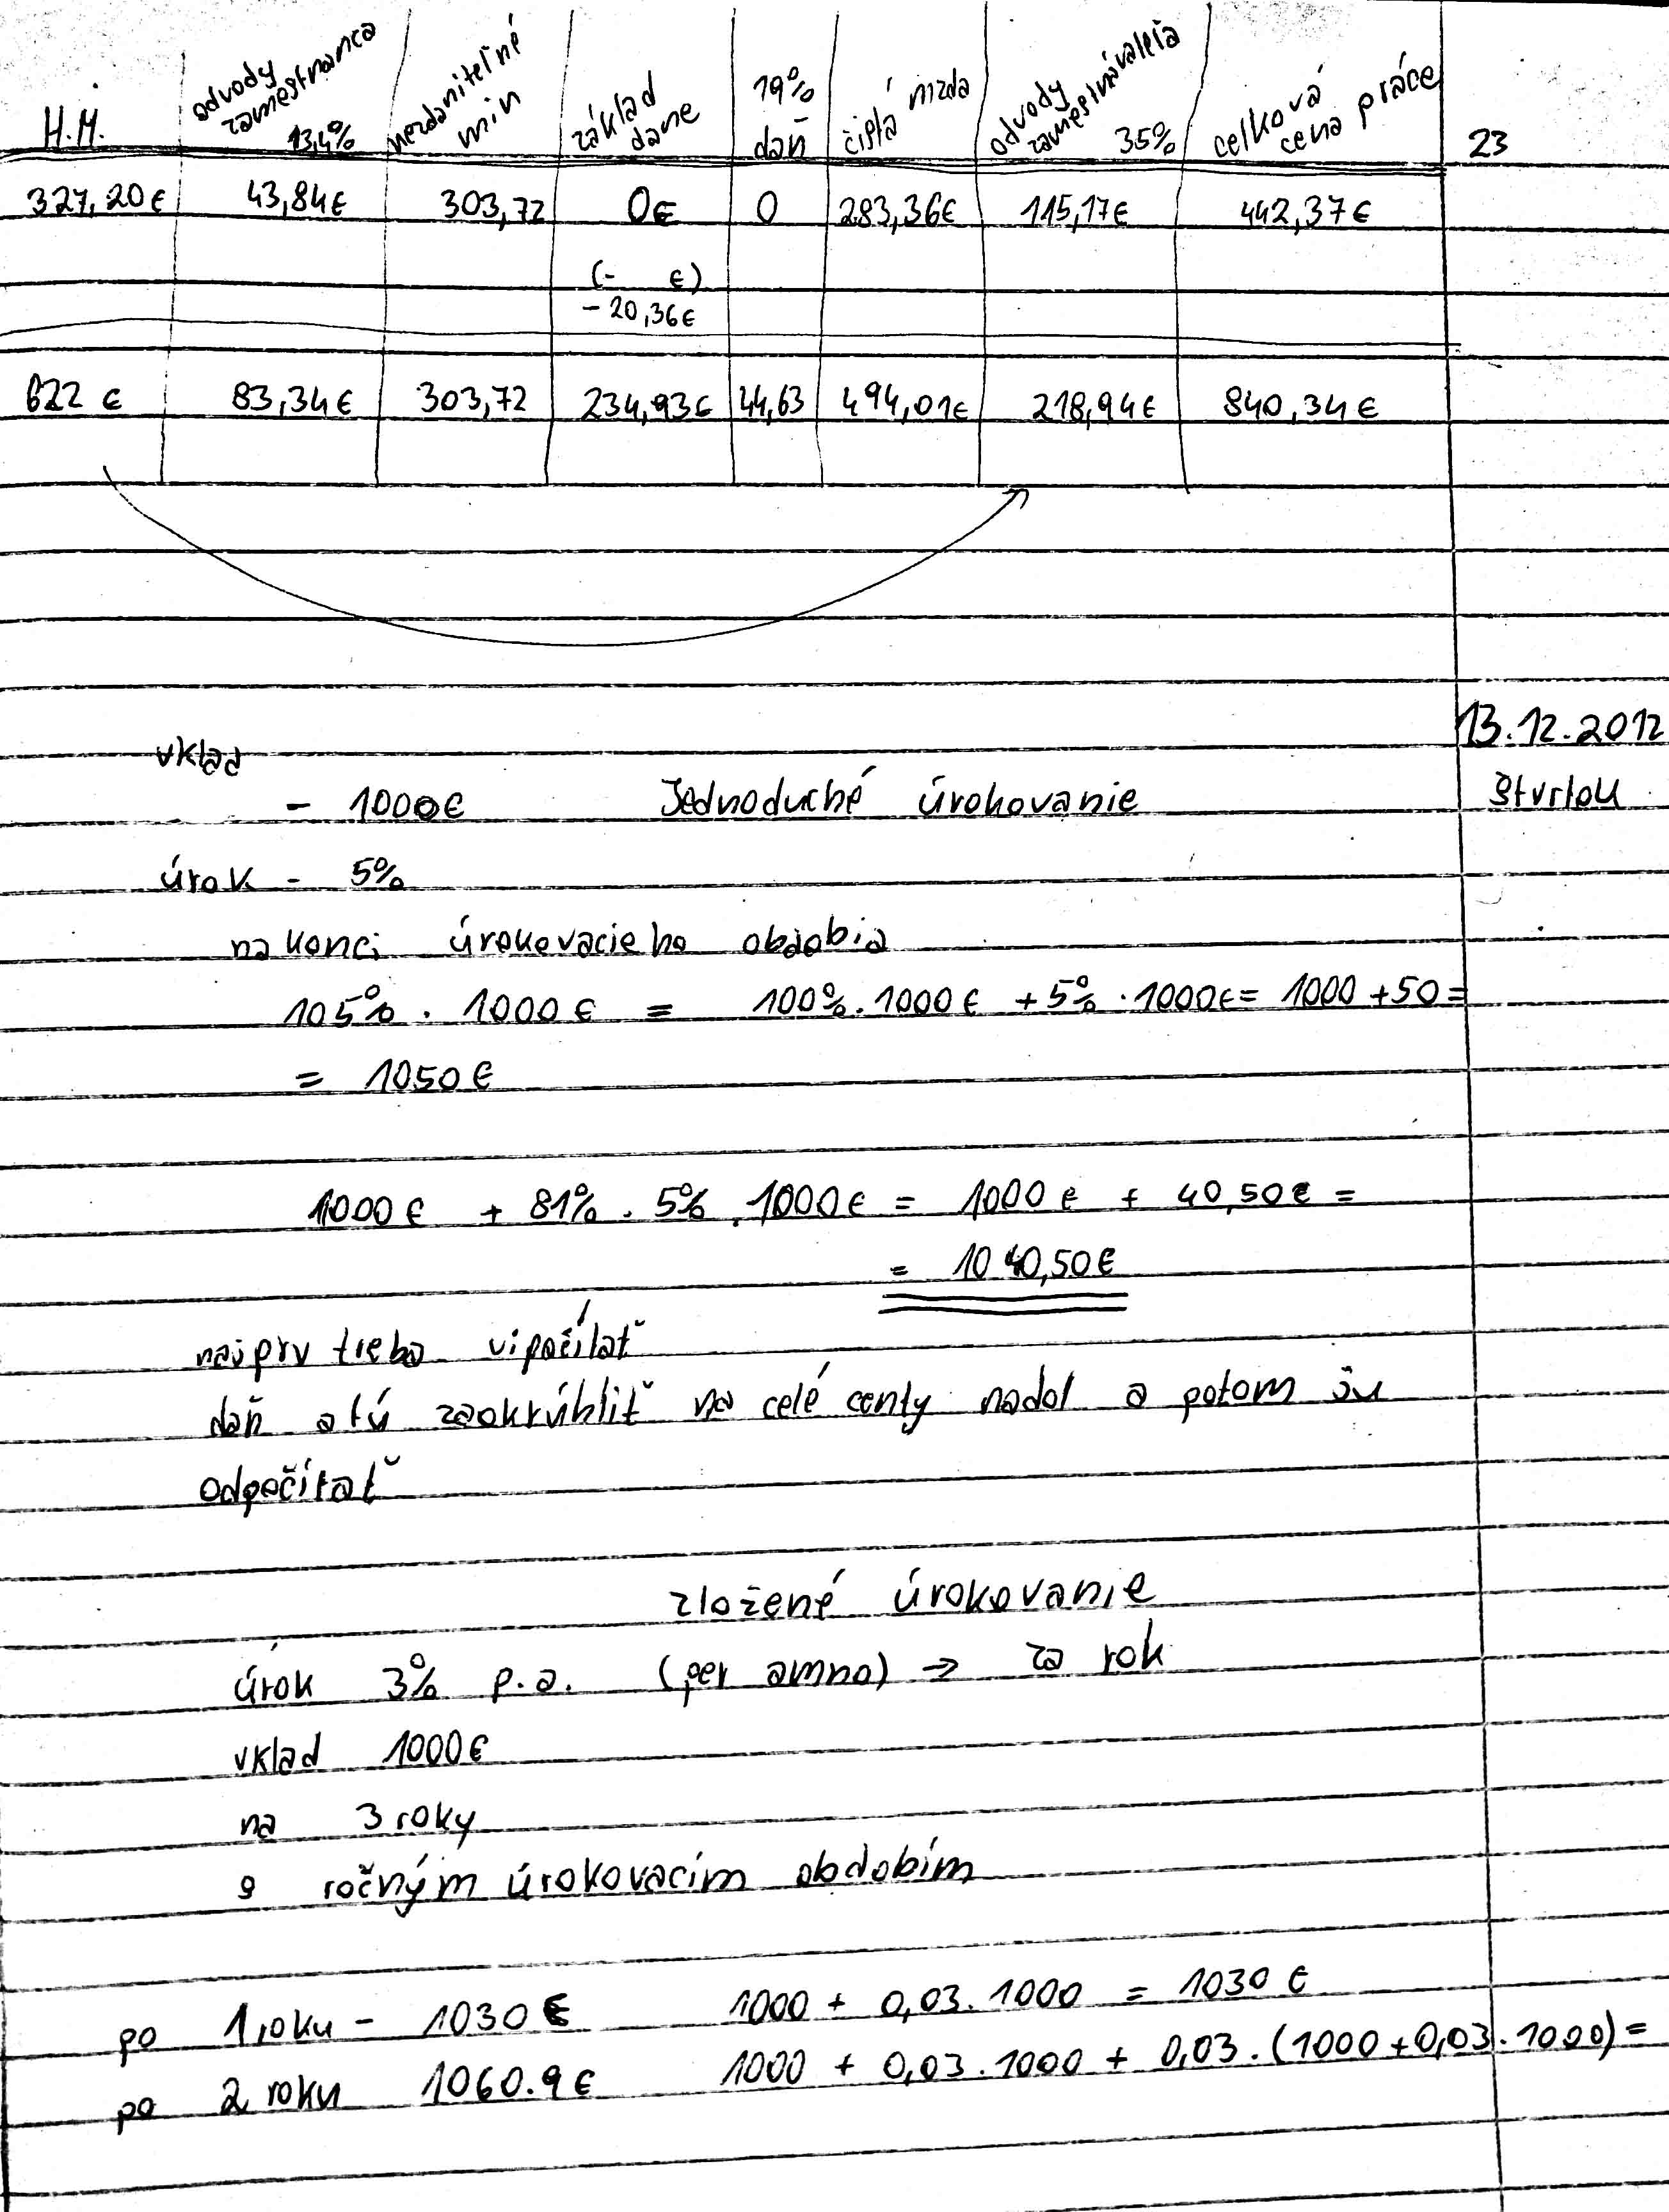 H.M. odvody zamestnanca 13,4% nezdaniteľné min základ dane 19% daň čistá mzda odvody zamestnávateľa 35% celková cena práce 23
327,20€ 43,84€ 303,72 0€ 0 283,36€ 115,17€ 442,37€
(- €)
-20,36€
622 € 83,34€ 303,72 234,93€ 44,63 494,01€ 218,94€ 840,34€
13.12.2012
vklad
- 1000€ Jednoduché úrokovanie štvrtok
úrok - 5%
na konci úrokovacieho obdobia
105% . 1000€ = 100%.1000€ +5% .1000€= 1000+50=
= 1050€
1000€ + 81% . 5% . 1000€ = 1000€ + 40,50€ =
= 1040,50€
najprv treba vipočítať
daň a tú zaokrúhliť na celé centy nadol a potom ju
odpočítať
zložené úrokovanie
úrok 3% p.a. (per anno) → za rok
vklad 1000€
na 3 roky
s ročným úrokovacím obdobím
po 1.roku - 1030€ 1000 + 0,03.1000 = 1030€
po 2 roku 1060.9€ 1000 + 0,03.1000 + 0,03.(1000+0,03.1000)=